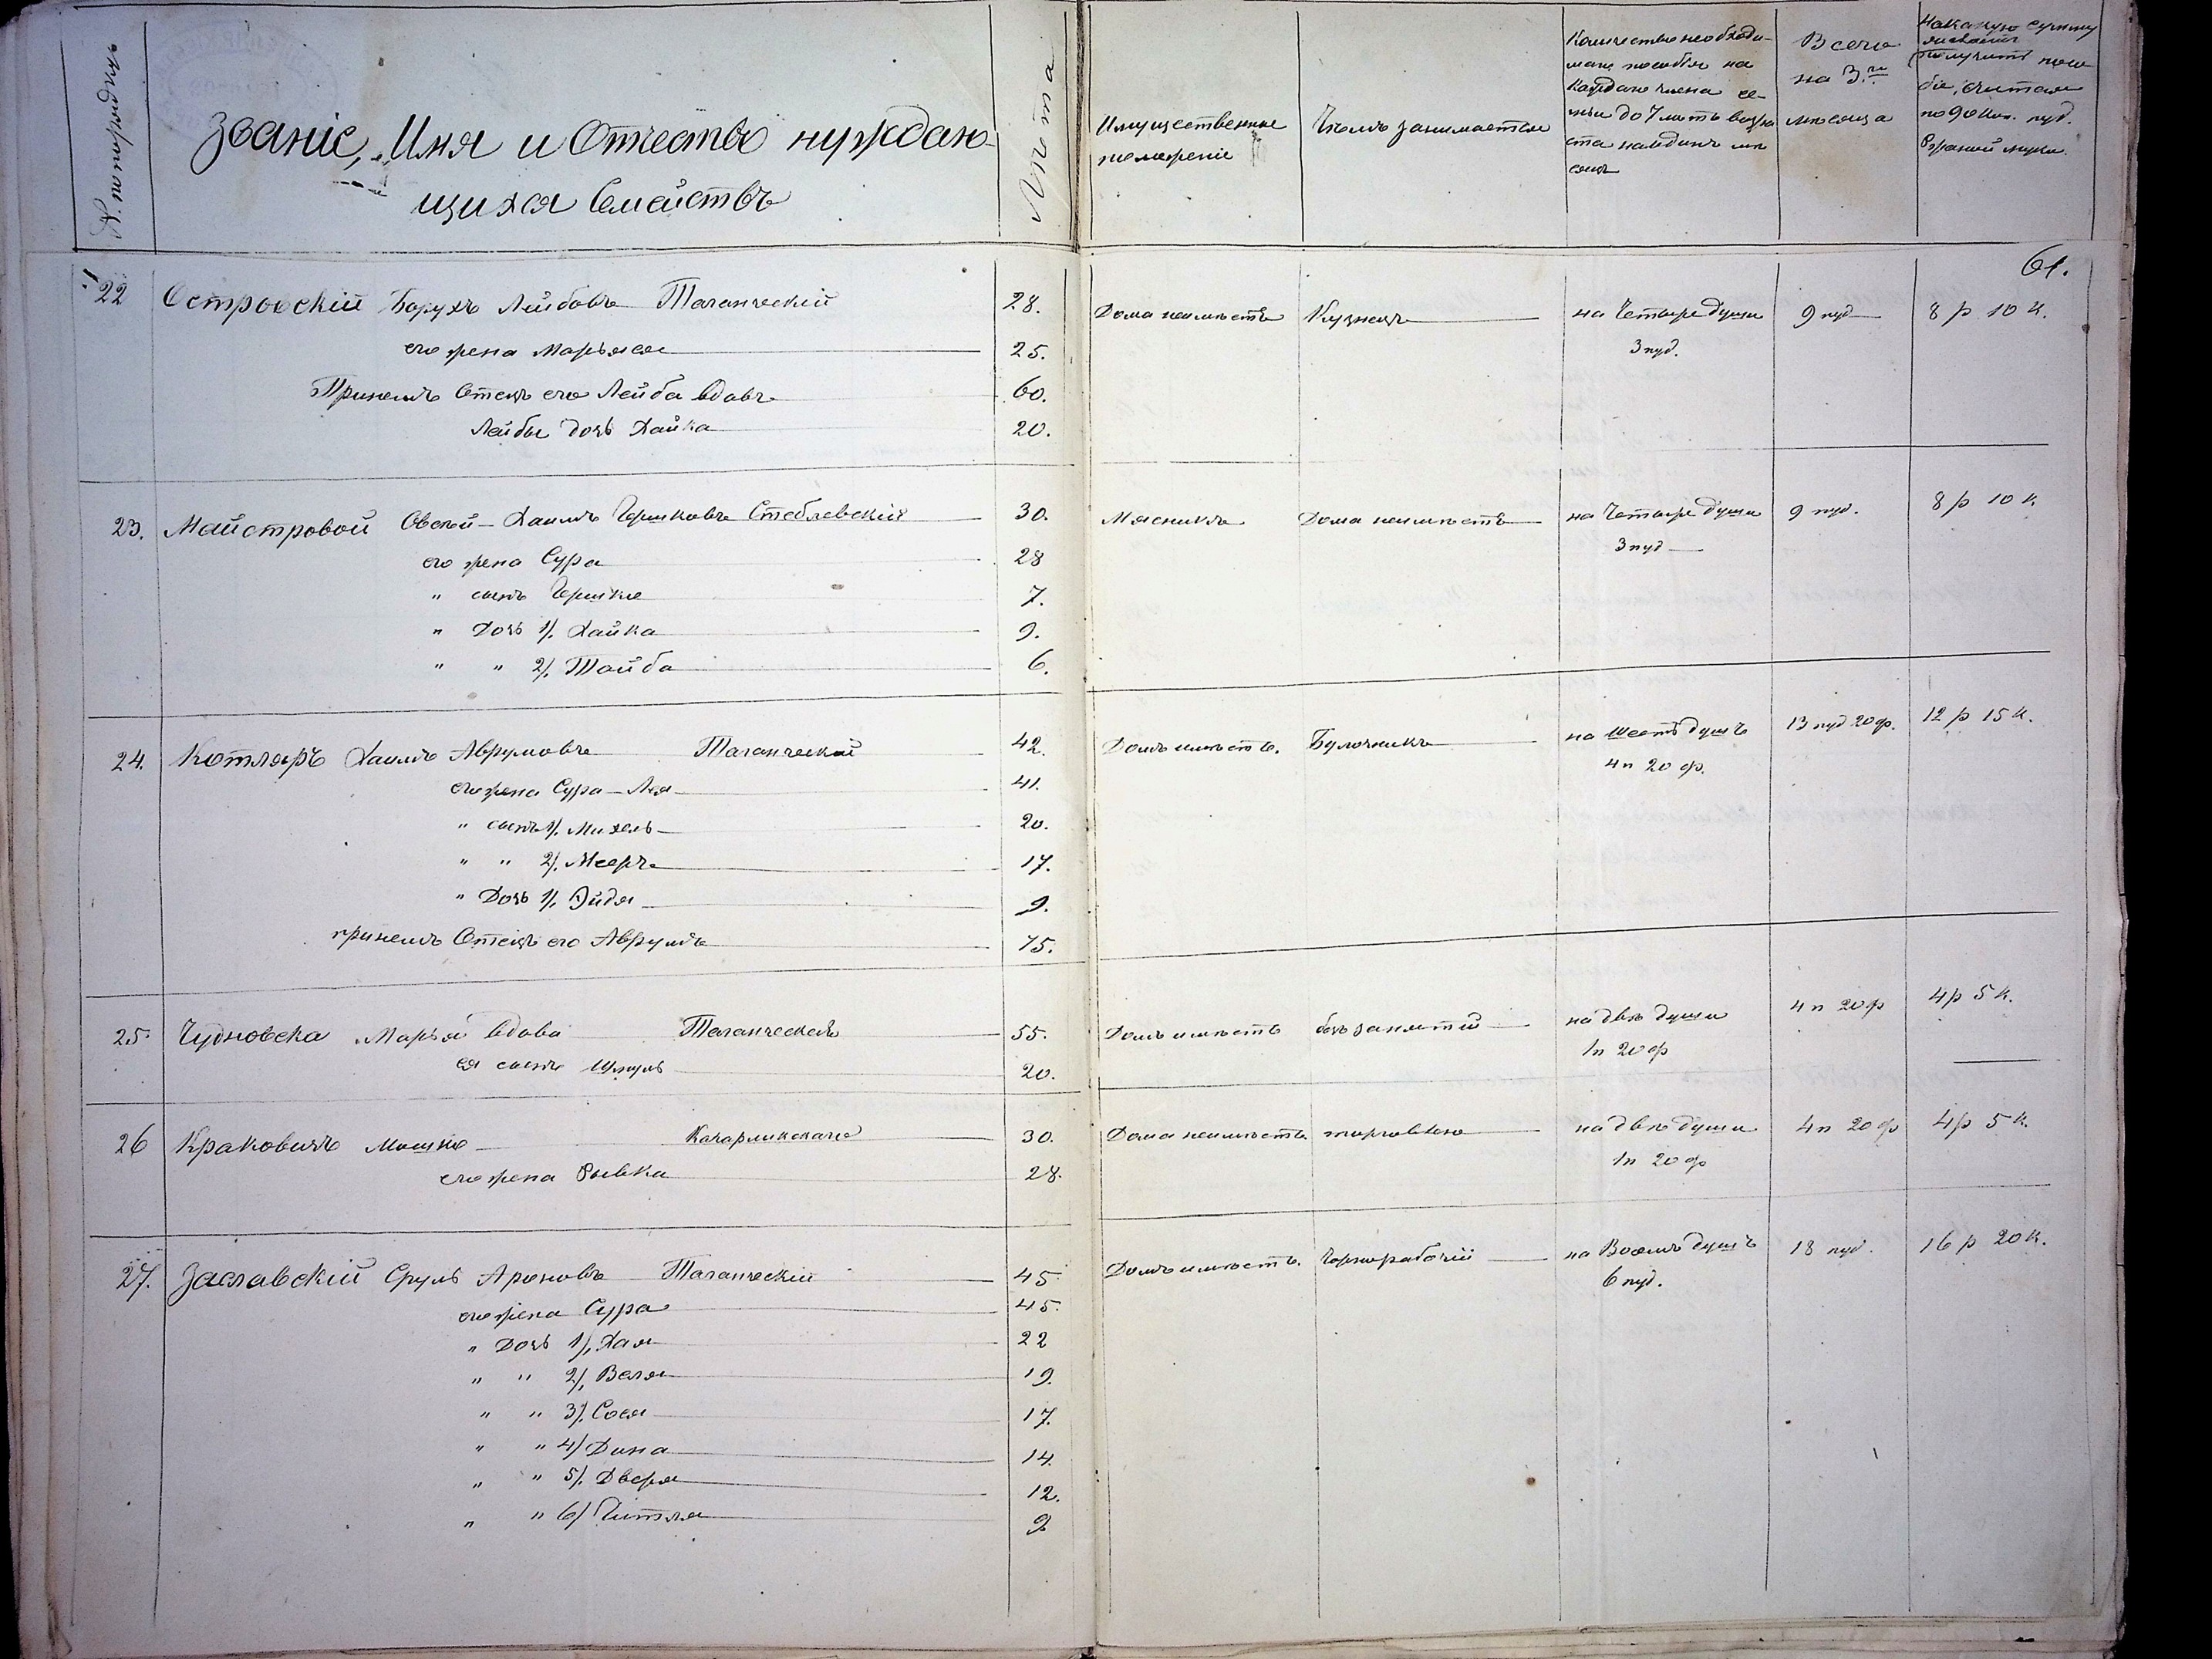 № по порядку
Званіе, Имя и Отчество нуждаю-
щихся Семействъ
Лѣта
Имущественное
положеніе
Чѣмъ занимается
Количество необходи-
маго пособія на
каждаго члена се-
мьи до 7 лѣтъ возра
ста на одинъ мѣ
сяцъ
Всего
на 3.ри
мѣсяца
На какую сумму
получитъ посо
біе, считая
по 90 коп. пуд.
ржаной муки.
61.
22 Островскій Борухъ Лейбовъ Таганческій 28. Дома неимѣетъ Кузнецъ на Четыре души 9 пуд 8 р 10 к.
его жена Марьяся 25. 3 пуд.
При немъ Отецъ его Лейба вдовъ 60.
Лейбы дочь Хайка 20.
23. Майстровой Овсей-Хаимъ Гершковъ Стеблевскій 30. Мясникъ Дома неимѣетъ на Четыре души 9 пуд. 8 р 10 к
его жена Сура 28 3 пуд
" сынъ Гершко 7.
" Дочь 1/. Хайка 9.
" " 2/. Тайба 6.
24. Котляръ Хаимъ Аврумовъ Таганческой 42. Домъ имѣетъ. Булочникъ на шесть душъ 13 пуд 20 ф. 12 р 15 к.
его жена Сура-Лея 41. 4 п 20 ф.
" сынъ 1/. Михель 20.
" " 2/. Мееръ 17.
" Дочь 1/. Эйдя 9.
при немъ Отецъ его Аврумъ 75.
25. Чудновска Марья вдова Таганческая 55. Домъ имѣетъ безъ занятій на двѣ души 4 п 20 ф 4 р 5 к.
ея сынъ Шмуль 20. 1 п 20 ф
26 Краковичъ Мошко Кагарликскаго 30. Дома неимѣетъ торговлею на двѣ души 4 п 20 ф 4 р 5 к.
его жена Рывка 28. 1 п 20 ф
27. Заславскій Сруль Ароновъ Таганческій 45. Домъ имѣетъ. Чернорабочій на Восемь душъ 18 пуд. 16 р 20 к.
его жена Сура 45. 6 пуд.
" Дочь 1/, Хая 22
" " 2/, Веля 19.
" " 3/. Сося 17.
" " 4/ Дина 14.
" " 5/. Двера 12.
" " 6/ Гитля 9.